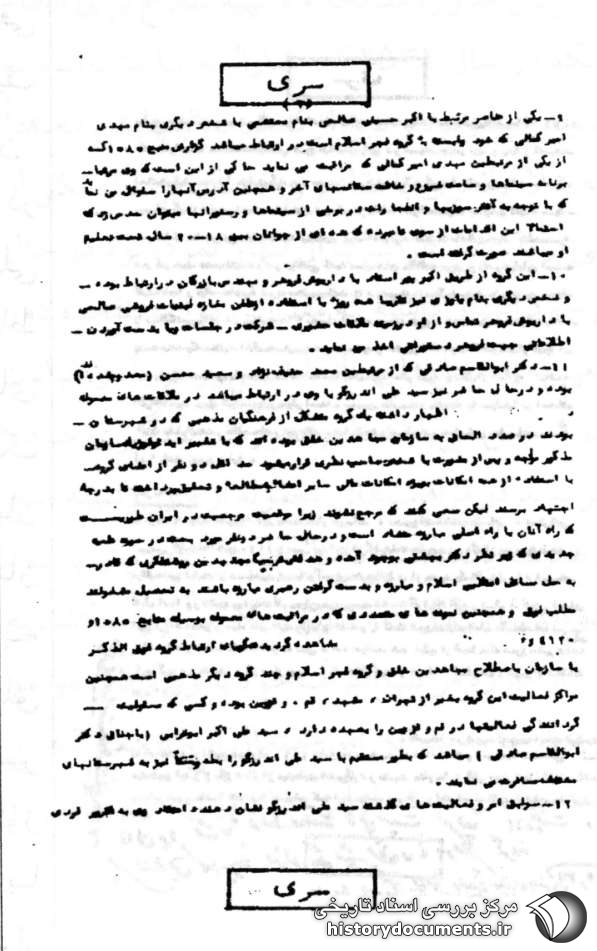 سری
۹ـ یکی از عناصر مرتبط با اکبر حسینی صالحی بنام مصطفی با شخص دیگری بنام مهدی
امیر کمالی که خود وابسته به گروه فجر اسلام است در ارتباط میباشد گزارش منبع
از یکی از مرتبطین مهدی امیر کمالی که مراقبت می نماید حاکی از این است که وی مرتباً
برنامه سینماها و ساعت شروع و خاتمه سانسهای آخر و همچنین آدرس آنها را سئوال می نماید
که با توجه به آتش سوزیها و انفجارات در برخی از سینماها و رستورانها میتوان حدس زد که
احتمالا این اقدامات از سوی نامبرده که عده ای از جوانان بین ۱۸ـ۲۰ سال تحت تعلیم
او میباشند صورت گرفته است .
۱۰ـ این گروه از طریق اکبر میر استاد با داریوش فروهر و مهندس بازرگان در ارتباط بوده ـ
و شخص دیگری بنام نیز تقریبا همه روزه با استفاده از تلفن مغازه لبنیات فروشی صالحی
با داریوش فروهر تماس و از او در زمینه ملاقات حضوری ـ شرکت در جلسات و یا بدست آوردن ـ
اطلاعاتی جهت فروهر دستوراتی اخذ می نماید .
۱۱ـ دکتر ابوالقاسم صادقی که از مرتبطین محمد حنیف نژاد و سعید محسن (معدومین)
بوده و در حال حاضر نیز سید علی اندرزگو با وی در ارتباط میباشد در ملاقات های معموله
اظهار داشت یک گروه متشکل از فرهنگیان مذهبی که در شهرستان ـ
بودند در صدد الحاق به سازمان مجاهدین خلق بوده اند که با تغییر ایدئولوژی سازمان
مذکور مواجه و پس از مشورت با شخص صاحب نظری قرار میشود حداقل دو نفر از اعضای گروه
با استفاده از همه امکانات بویژه امکانات مالی سایر اعضا به مطالعه و تحقیق پرداخته تا بدرجه
اجتهاد برسند لیکن سعی کنند که مرجع نشوند زیرا موقعیت مرجعیت در ایران طوریست
که راه آنان با راه اصلی مبارزه متضاد است و در حال حاضر دو نفر مورد بحث در حوزه علمیه
جدیدی که زیر نظر دکتر بهشتی بوجود آمده و هدفش تربیت مجتهدین روشنفکری که قادر
به حل مسائل انقلابی اسلام و مبارزه و بدست گرفتن رهبری مبارزه باشند به تحصیل مشغولند
مطلب فوق و همچنین نمونه های متعددی که در مراقبت های معموله بوسیله منابع
مشاهده گردیده گویای ارتباط گروه فوق الذکر
با سازمان باصطلاح مجاهدین خلق و گروه فجر اسلام و چند گروه دیگر مذهبی است همچنین
مراکز فعالیت این گروه بغیر از تهران ، مشهد ، قم ، و قزوین بوده و کسی که مسئولیت ـ
گردانندگی فعالیتها در قم و قزوین را بعهده دارد ، سید علی اکبر ابوترابی (باجناق دکتر
ابوالقاسم صادقی ) میباشد که بطور مستقیم با سید علی اندرزگو رابطه داشته نیز به شهرستانهای
مختلف مسافرت می نمایند .
۱۲ـ سوابق امر و فعالیت های گذشته سید علی اندرزگو نشان دهنده اعتقاد وی به فردی
سری
مرکز بررسی اسناد تاریخی
historydocuments.ir